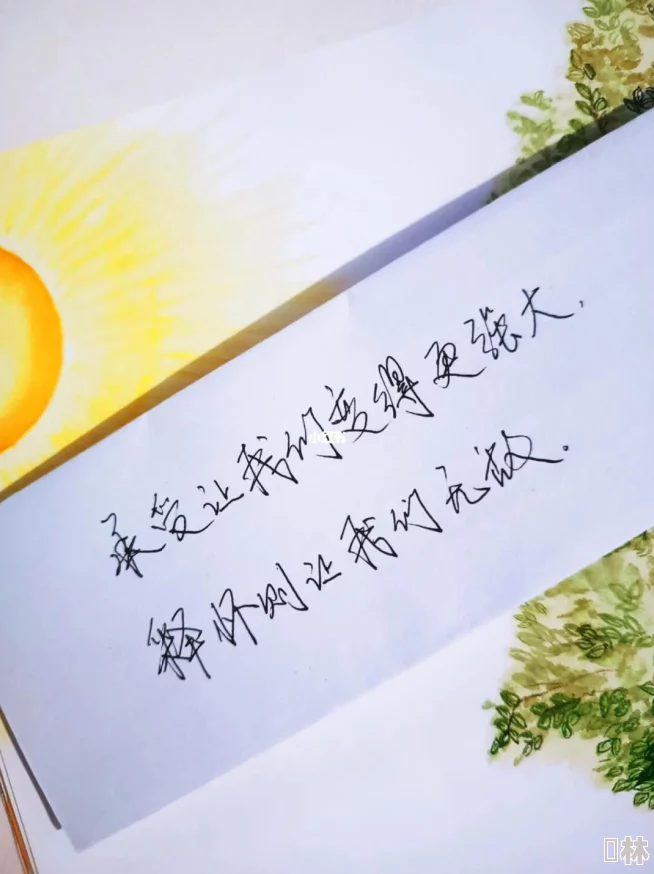 承受让我们变得更强大.
释怀则让我们无敌.
小红书
林